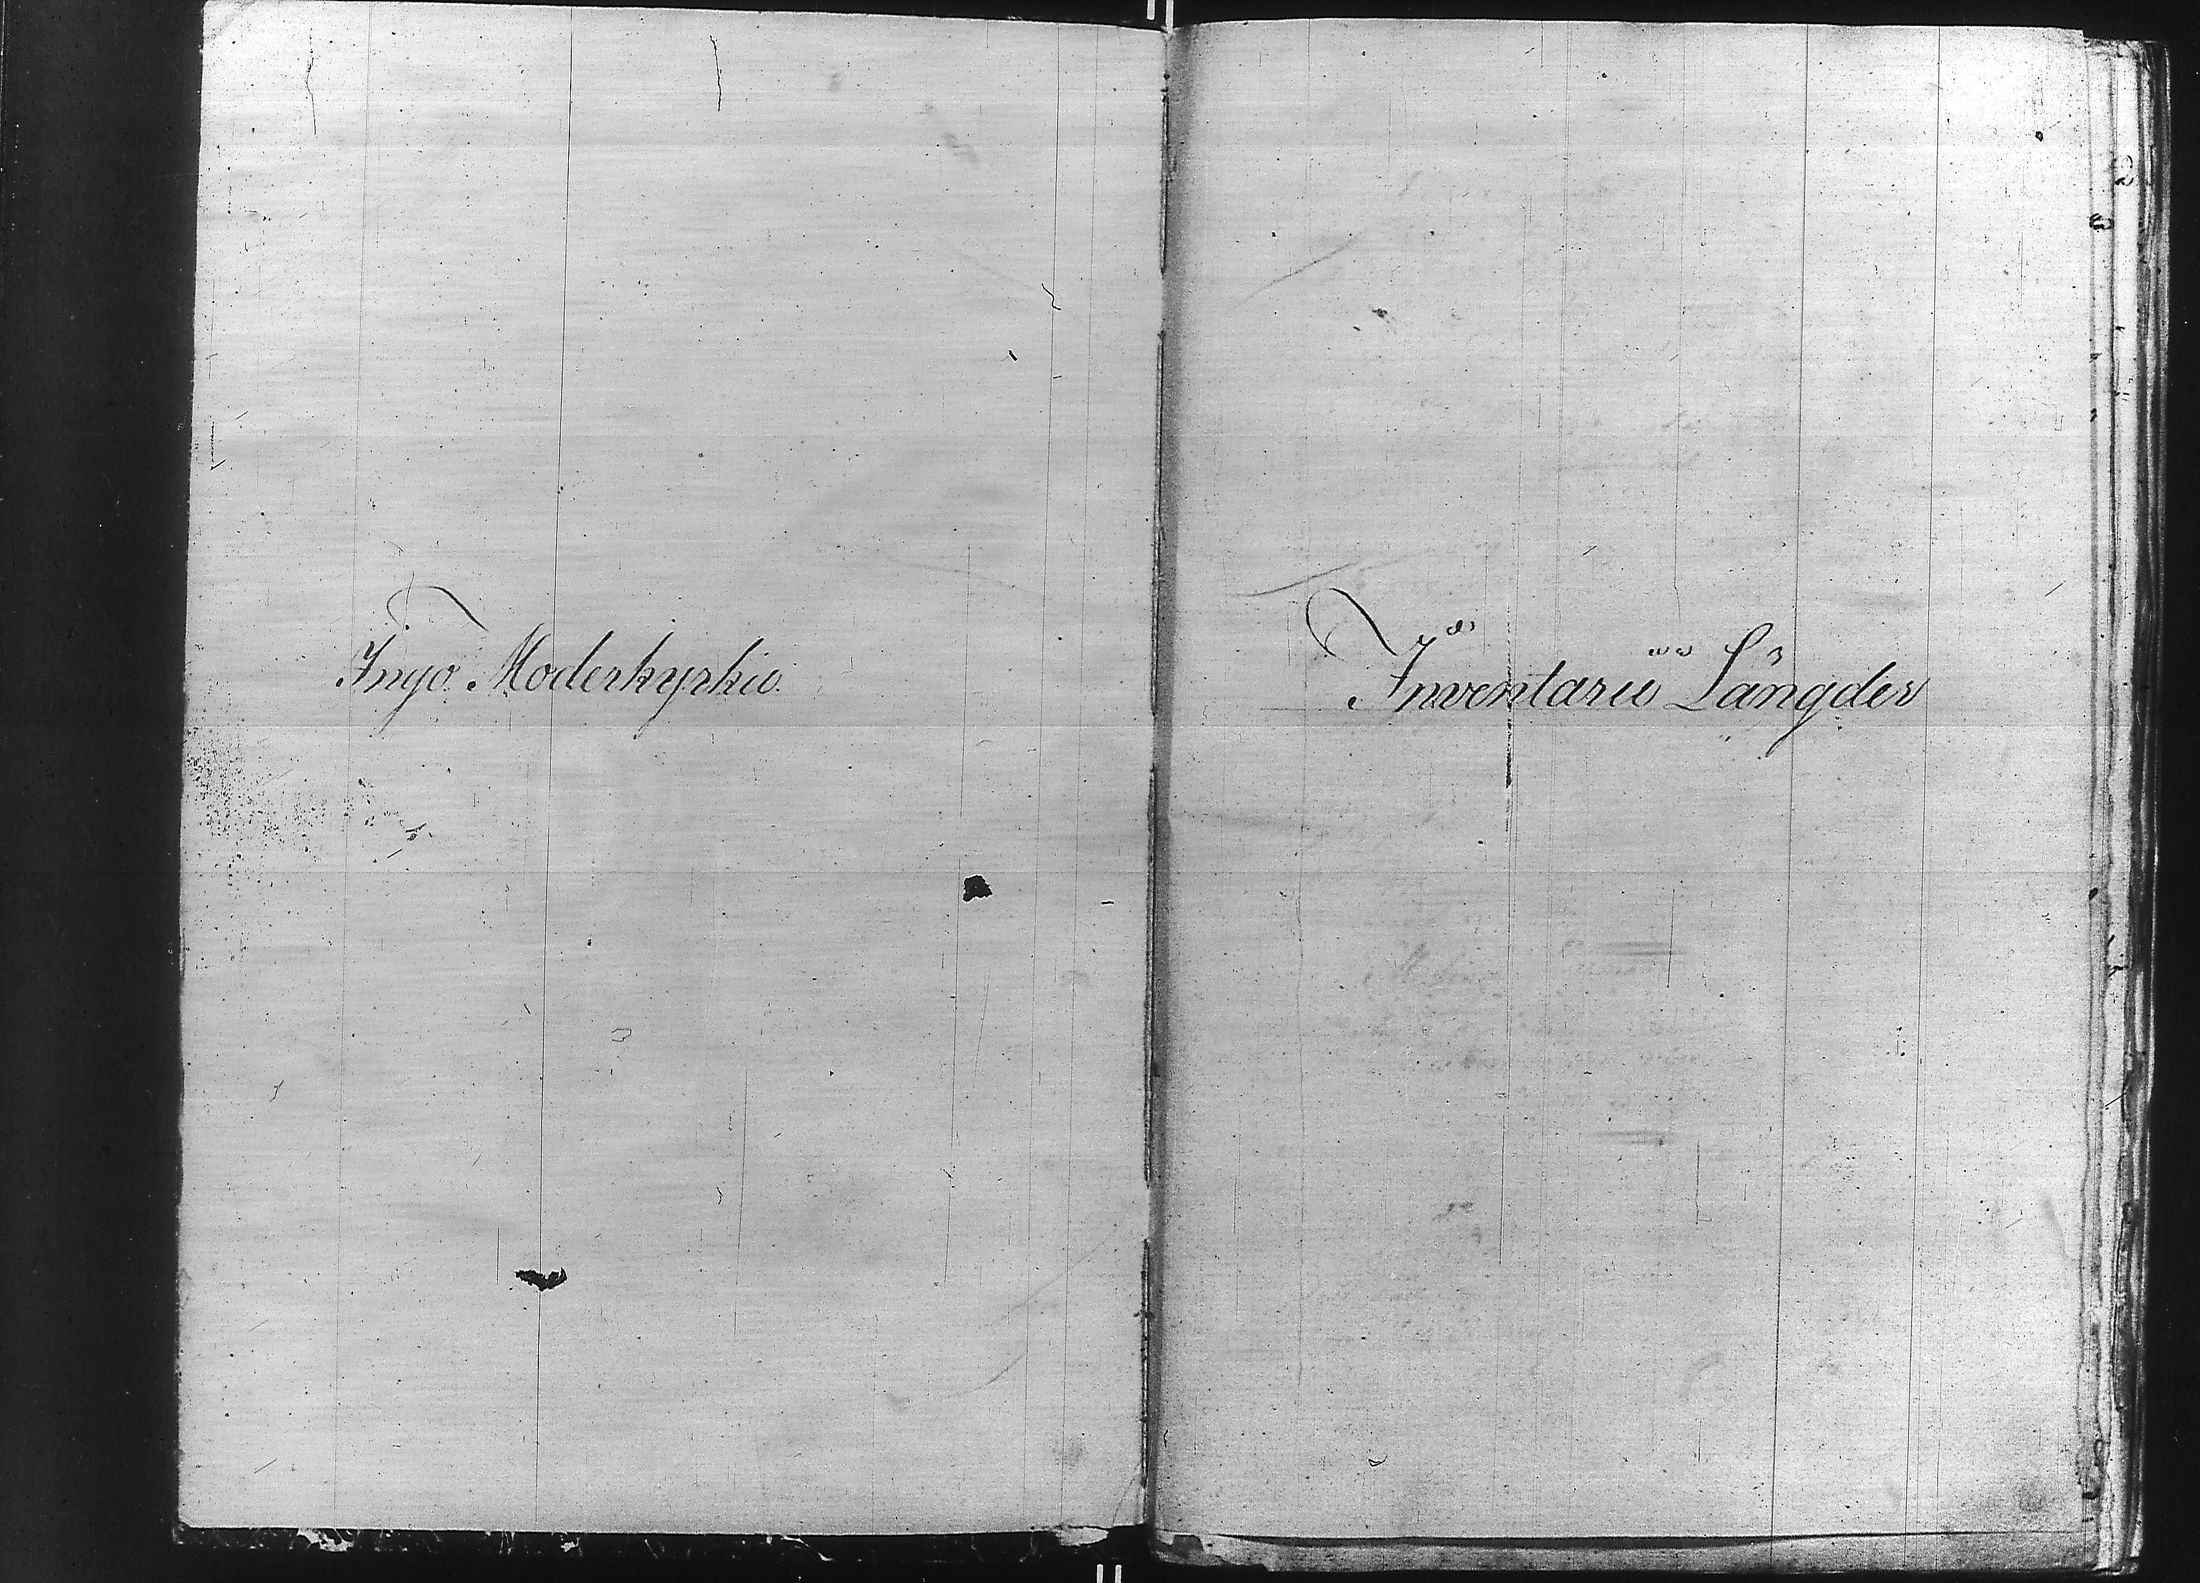 Ingo Moderkyrkio.
Inventarie Längder